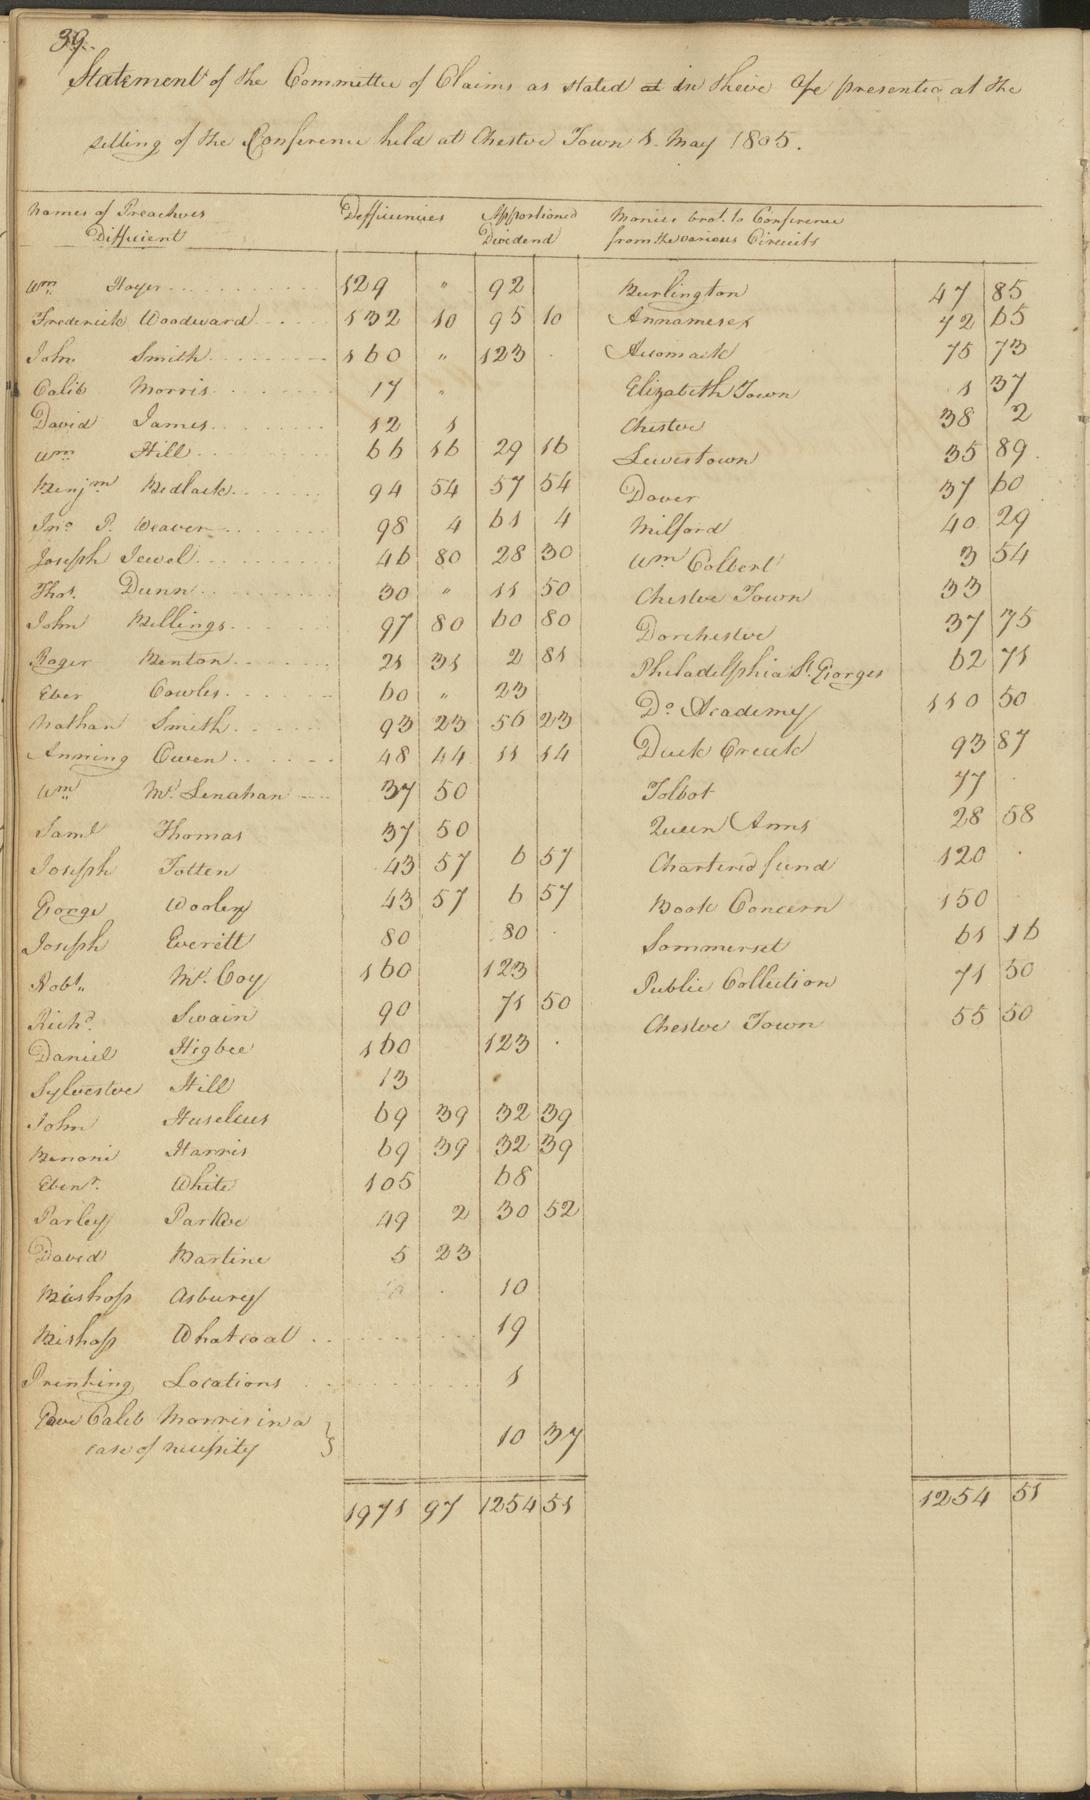 39.
Statement of the Committee of Claims as stated at in theire presented at the
setting of the Conference held at Chester Town 1. May 1805.
Names of Preachers Difficient
Defficiencies
Apportioned Dividend
Monies brot. to Conference from the various Circuits
Wm. 129 " 92
Burlington 47 85
Frederick Woodward 132 10 95 10
Annamesex 42 65
John Smith 160 " 123 .
Accomack 75 73
Calib Morris 17 "
Elizabeth Town 1 37
David James 12 1
Chester 38 2
Wm Hill 66 16 29 16
Lewistown 35 89
Benjm Bidlack 94 54 57 54
Dover 37 60
Jno. P. Weaver 98 4 61 4
Milford 40 29
Joseph Jewel 46 80 28 30
Wm Colbert 3 54
Thos. Dunn 30 " 11 50
Chester Town 33
John Billings 97 80 60 80
Dorchester 37 75
Roger Benton 21 31 2 81
Philadelphia St. Georges 62 71
Eber Cowles 60 " 23
Do. Academy 110 50
Nathan Smith 93 23 56 23
Duck Creek 93 87
Anning Owen 48 44 11 14
Tolbot 77 .
Wm Mc. Lenahan 37 50
Queen Anns 28 58
Saml Thomas 37 50
Chartered fund 120 .
Joseph Totten 43 57 6 57
Book Concern 150
George Wooley 43 57 6 57
Sommerset 61 16
Joseph Everett 80 80 .
Public Collection 71 50
Robt. Mc. Coy 160 123
Chester Town 55 50
Richd. Swain 90 71 50
Daniel Higbee 160 123 .
Sylvester Hill 13
John Huselius 69 39 32 39
Benoni Harris 69 39 32 39
Ebenr. White 105 68
Parley Parker 49 2 30 52
David Bartine 5 23
Bishop Asbury 10
Bishop Whatcoat 19
Printing Locations 1
Gave Calib Morris in a
case of necessity 10 37
1971 97 1254 51
1254 51